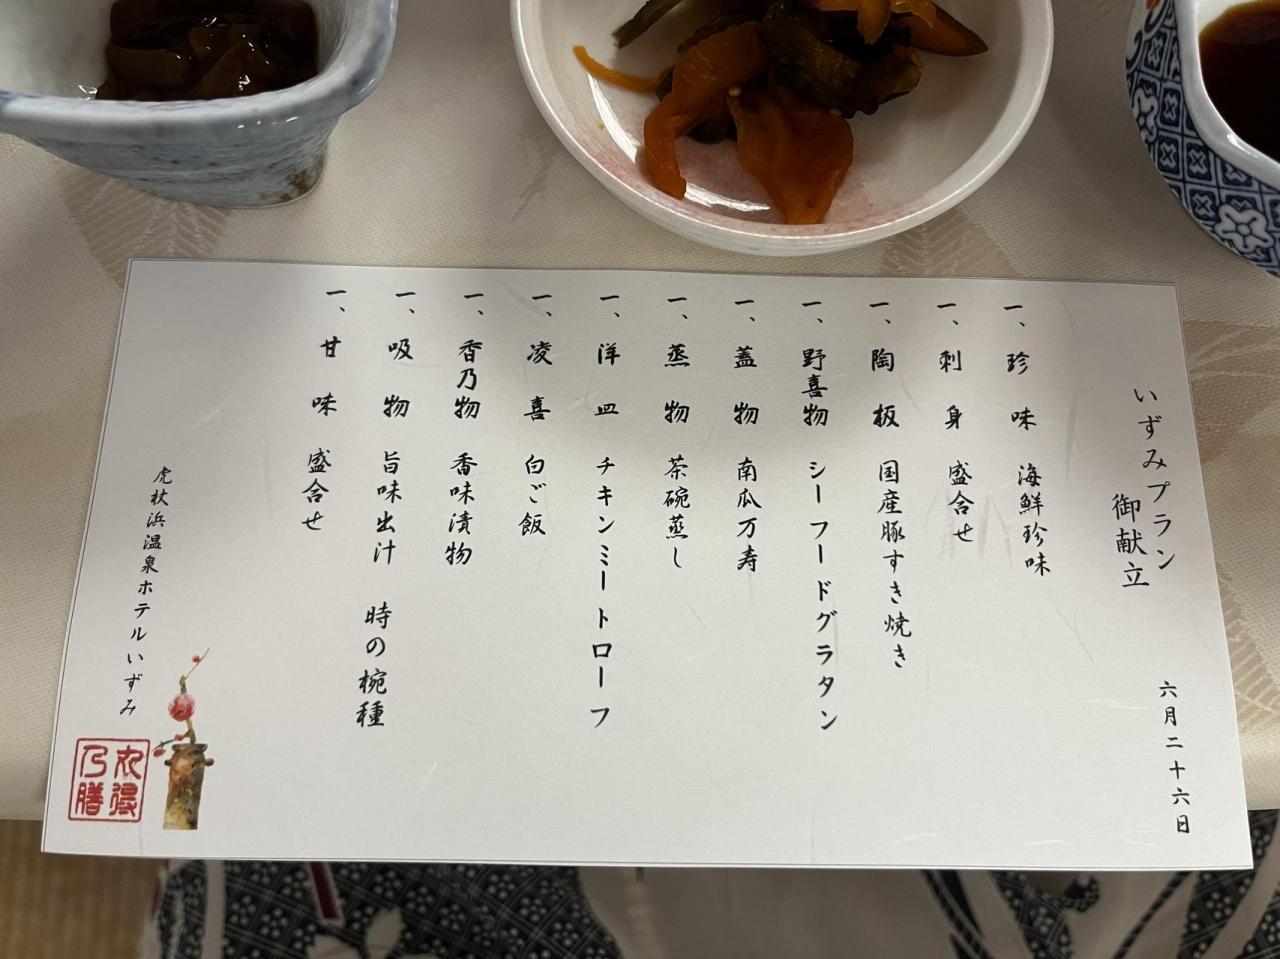 いずみプラン
御献立
六月二十六日
一、珍味 海鮮珍味
一、刺身 盛合せ
一、陶板 国産豚すき焼き
一、野喜物 シーフードグラタン
一、蓋物 南瓜万寿
一、蒸物 茶碗蒸し
一、洋皿 チキンミートローフ
一、凌喜 白ご飯
一、香乃物 香味漬物
一、吸物 旨味出汁 時の椀種
一、甘味 盛合せ
虎杖浜温泉ホテルいずみ